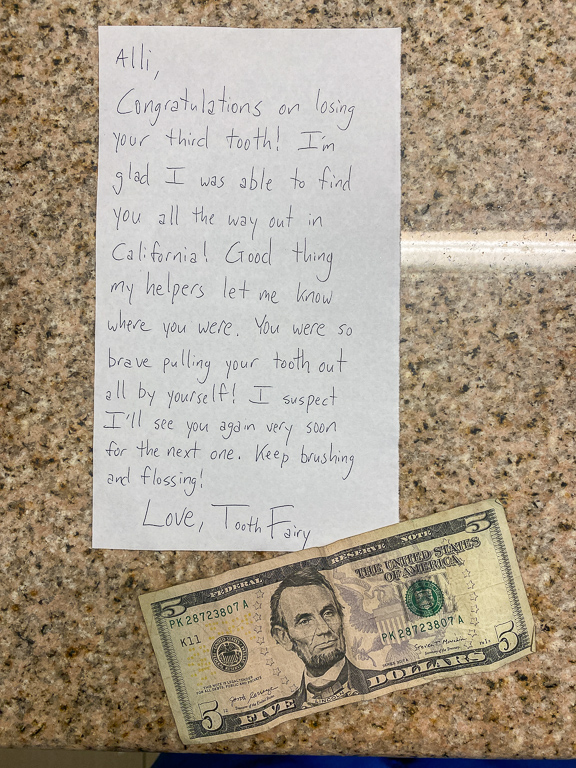 Alli,
Congratulations on losing
your third tooth! I'm
glad I was able to find
you all the way out in
California! Good thing
my helpers let me know
where you were. You were so
brave pulling your tooth out
all by yourself! I suspect
I'll see you again very soon
for the next one. Keep brushing
and flossing!
Love, Tooth Fairy
FEDERAL RESERVE NOTE
5
5
THE UNITED STATES
OF AMERICA
PK 28723807 A
K11
PK 28723807 A
THIS NOTE IS LEGAL TENDER
FOR ALL DEBTS, PUBLIC AND PRIVATE
5
FIVE DOLLARS
5